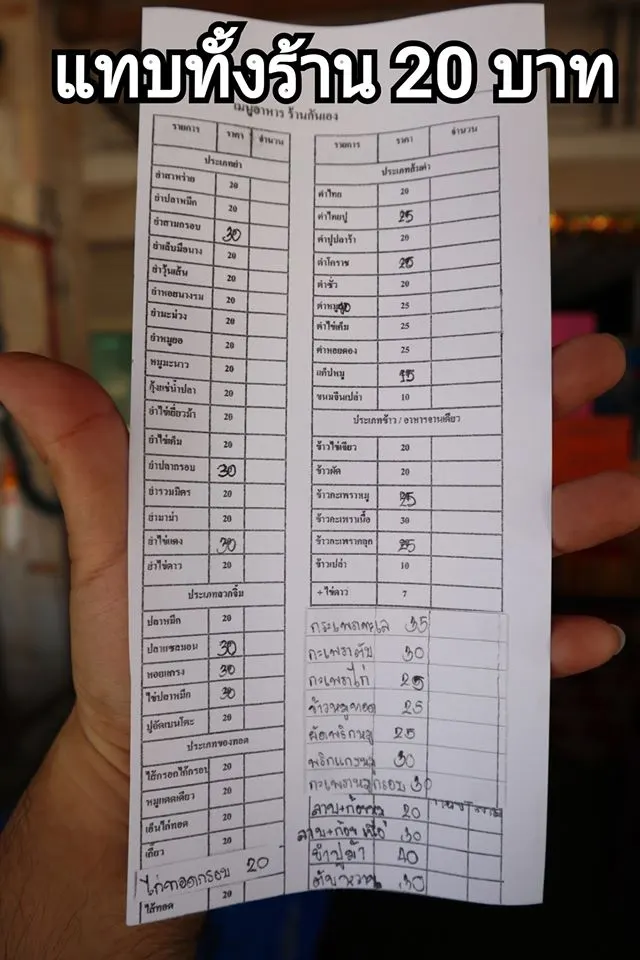 แทบทั้งร้าน 20 บาท
เมนูอาหาร ร้านกันเอง
รายการ ราคา จำนวน
ประเภทยำ
ยำสาหร่าย 20
ยำปลาหมึก 20
ยำสามกรอบ 30
ยำเล็บมือนาง 20
ยำวุ้นเส้น 20
ยำหอยนางรม 20
ยำมะม่วง 20
ยำหมูยอ 20
หมูมะนาว 20
กุ้งแช่น้ำปลา 20
ยำไข่เยี่ยวม้า 20
ยำไข่เค็ม 20
ยำปลากรอบ 30
ยำรวมมิตร 20
ยำมาม่า 20
ยำไข่แดง 30
ยำไข่ดาว 20
ประเภทลวกจิ้ม
ปลาหมึก 20
ปลาแซลมอน 30
หอยแครง 30
ไข่ปลาหมึก 30
ปูอัดเบนโตะ 20
ประเภทของทอด
ไส้กรอกไก่กรอบ 20
หมูแดดเดียว 20
เอ็นไก่ทอด 20
เกี๊ยว 20
ไก่ทอดกรอบ 20
ไส้ทอด 20
รายการ ราคา จำนวน
ประเภทส้มตำ
ตำไทย 20
ตำไทยปู 25
ตำปูปลาร้า 20
ตำโคราช 25
ตำซั่ว 20
ตำหมูยอ 25
ตำไข่เค็ม 25
ตำหอยดอง 25
แค็ปหมู 15
ขนมจีนเปล่า 10
ประเภทข้าว / อาหารจานเดียว
ข้าวไข่เจียว 20
ข้าวผัด 20
ข้าวกะเพราหมู 25
ข้าวกะเพราเนื้อ 30
ข้าวกะเพราคลุก 25
ข้าวเปล่า 10
+ ไข่ดาว 7
กระเพราทะเล 35
กะเพราตับ 30
กะเพราไก่ 25
ข้าวหมูทอด 25
ผัดพริกหมู 25
พริกแกงหมู 30
กะเพราหมูกรอบ 30
ลาบ+ก้อยหมู 20
ลาบ+ก้อยเนื้อ 30
ยำปูม้า 40
ตับหวาน 30